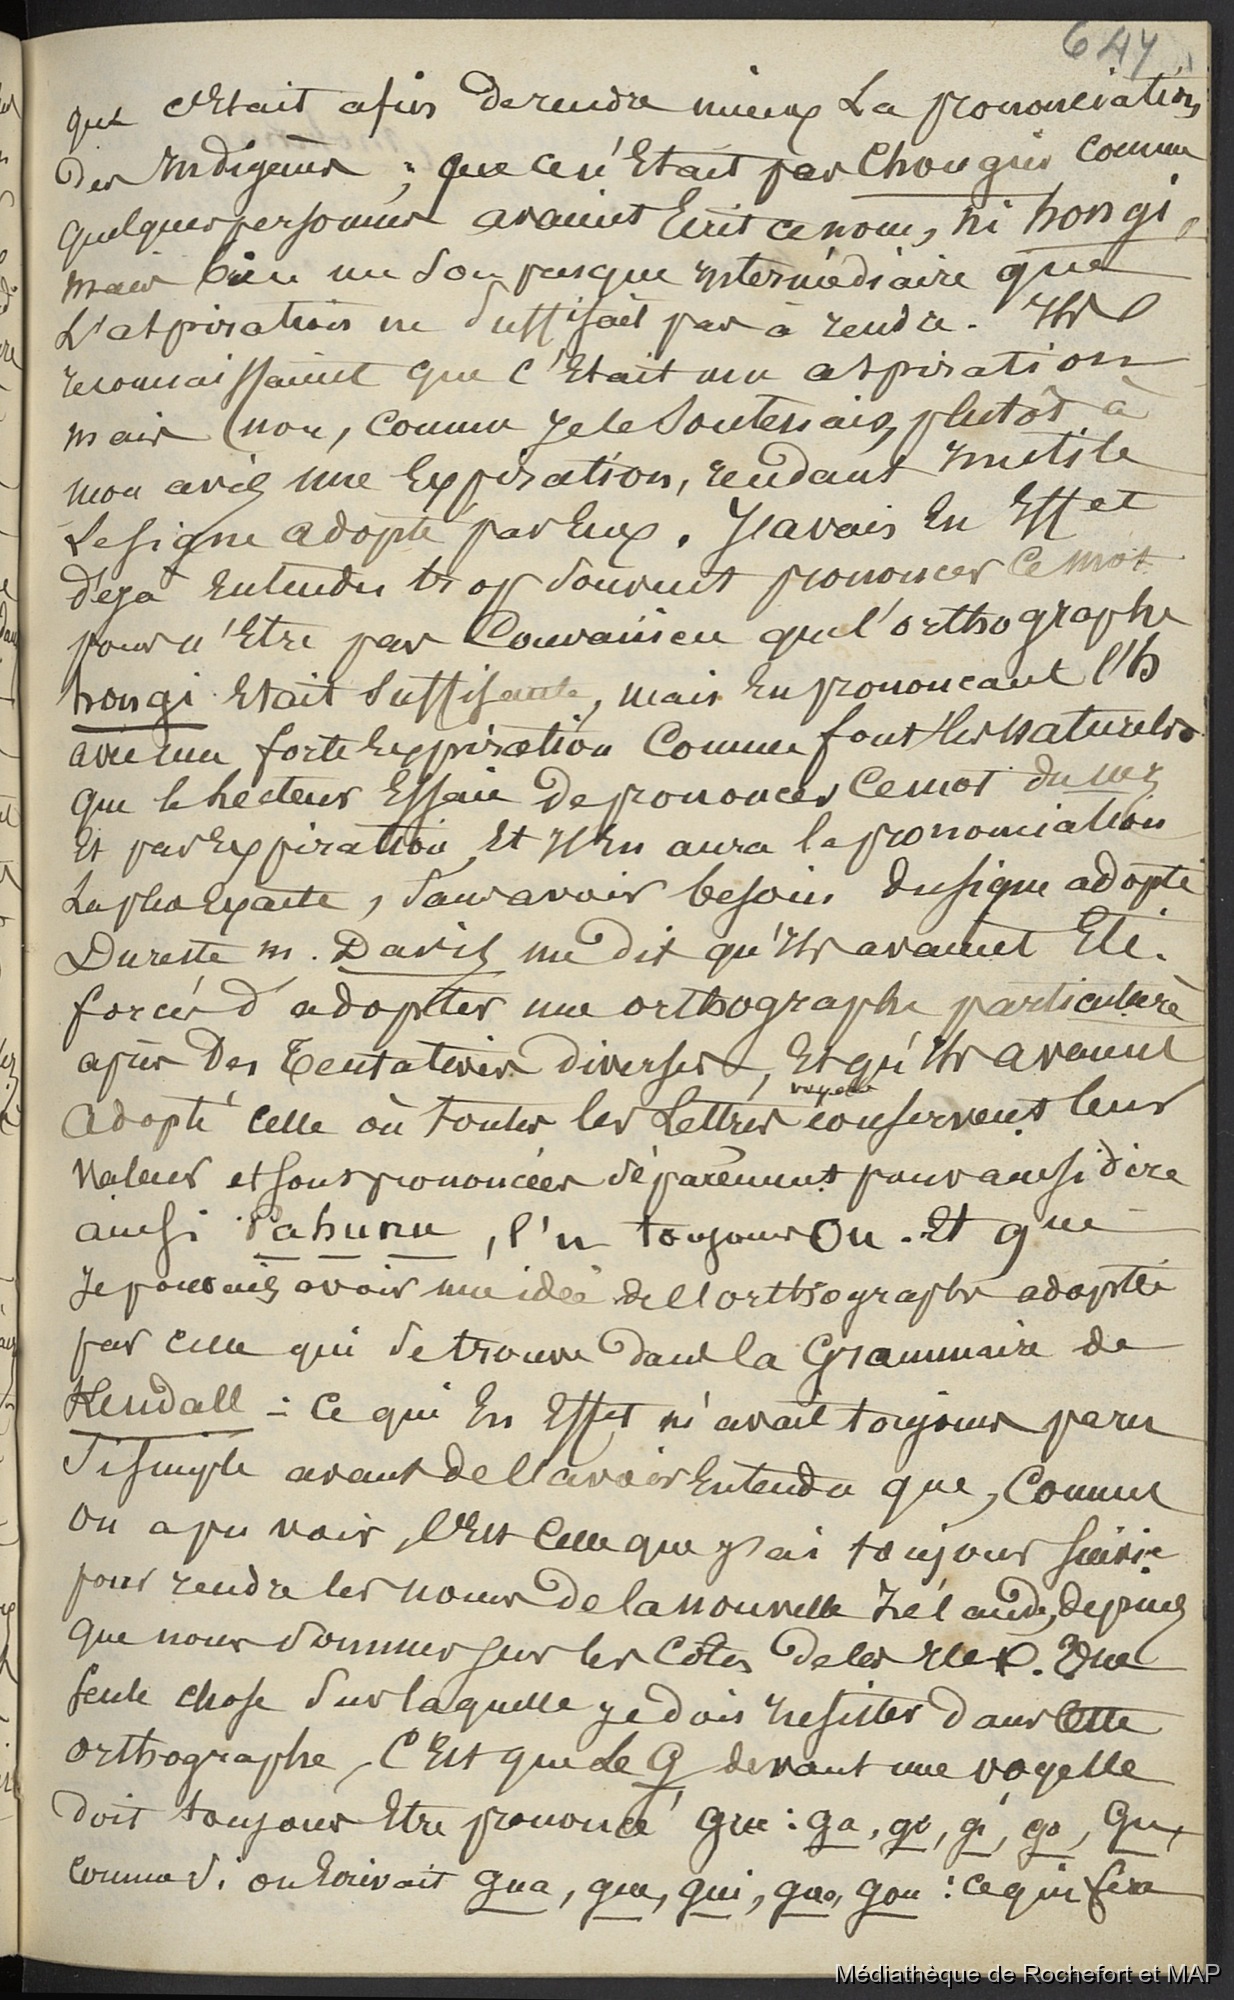 647
que c'Etait afin de rendre mieux La prononciation
Des Indigènes ; que ce n'Etait pas Chongui comme
quelques personnes avaient Ecrit ce nom, ni hongi,
mais bien un son presque Intermédiaire que
L'aspiration ne suffisait pas à rendre. Ils
reconnaissaient que c'Etait une aspiration
mais non, comme Je le Soutenais, plutôt à
mon avis une Expiration, rendant Inutile
Le signe adopté par Eux. J'avais En Effet
déja Entendu trop souvent prononcer ce mot
pour n'Etre pas Convaincu que l'orthographe
hongi Etait Suffisante, mais En prononcant l'h
avec une forte Expiration Comme font les Naturels.
que le hecteur Essaie De prononcer Ce mot du nez
Et par Expiration, Et Il En aura la prononciation
La plus Exacte, Sans avoir besoin du signe adopté
Du reste m. Davis me dit qu'Ils avaient Eté
forcés d'adopter une orthographe particulière
après Des Tentatives diverses, Et qu'Ils avaient
voyelles
adopté celle où toutes les Lettres conservent leur
Valeur et sont prononcées séparément pour ainsi dire
ainsi Pahunu, l'u toujours Ou. Et que
Je pouvais avoir une idée de l'orthographe adoptée
par celle qui se trouve Dans la Grammaire de
Kendall : Ce qui En Effet m'avait toujours paru
Si simple avant de l'avoir Entendu que, Comme
on a pu voir, C'Est Celle que J'ai toujours Suivie
pour rendre les noms De la nouvelle Zélande, depuis
que nous Sommes sur les Côtes De les Iles. Une
Seule chose Sur laquelle je dois hesiter dans Cette
orthographe, C'Est que Le G devant une voyelle
doit toujours Etre prononcé gue : ga, ge, gi, go, Gu,
comme si on Ecrivait gua, gue, gui, guo, gou : ce qui fera
Médiathèque de Rochefort et MAP